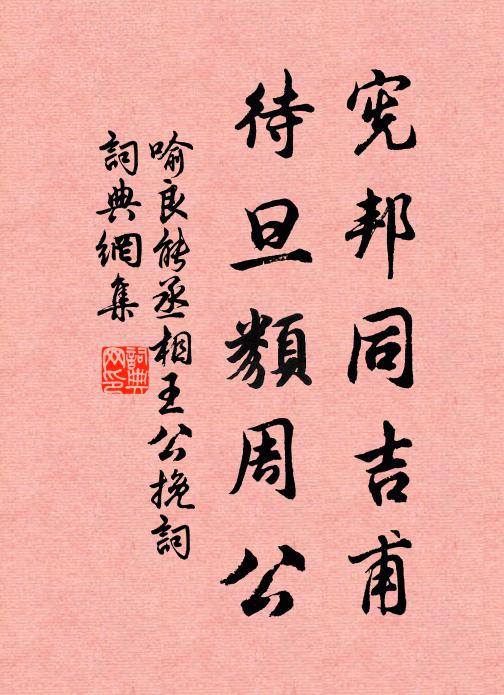 宪邦同吉甫
待旦類周公
喻良能丞相王公挽詞
詞典網集
詞典
网印